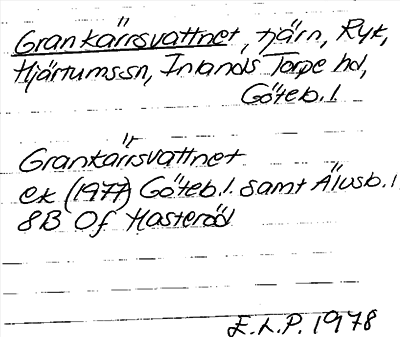 Grankärrsvattnet, tjärn, Ryk,
Hjärtums sn, Inlands Torpe hd,
Göteb. l
Grankärrsvattnet
ek (1977) Göteb. l. samt Älvsb. l
8B 0f Hasteröd
E.L.P. 1978